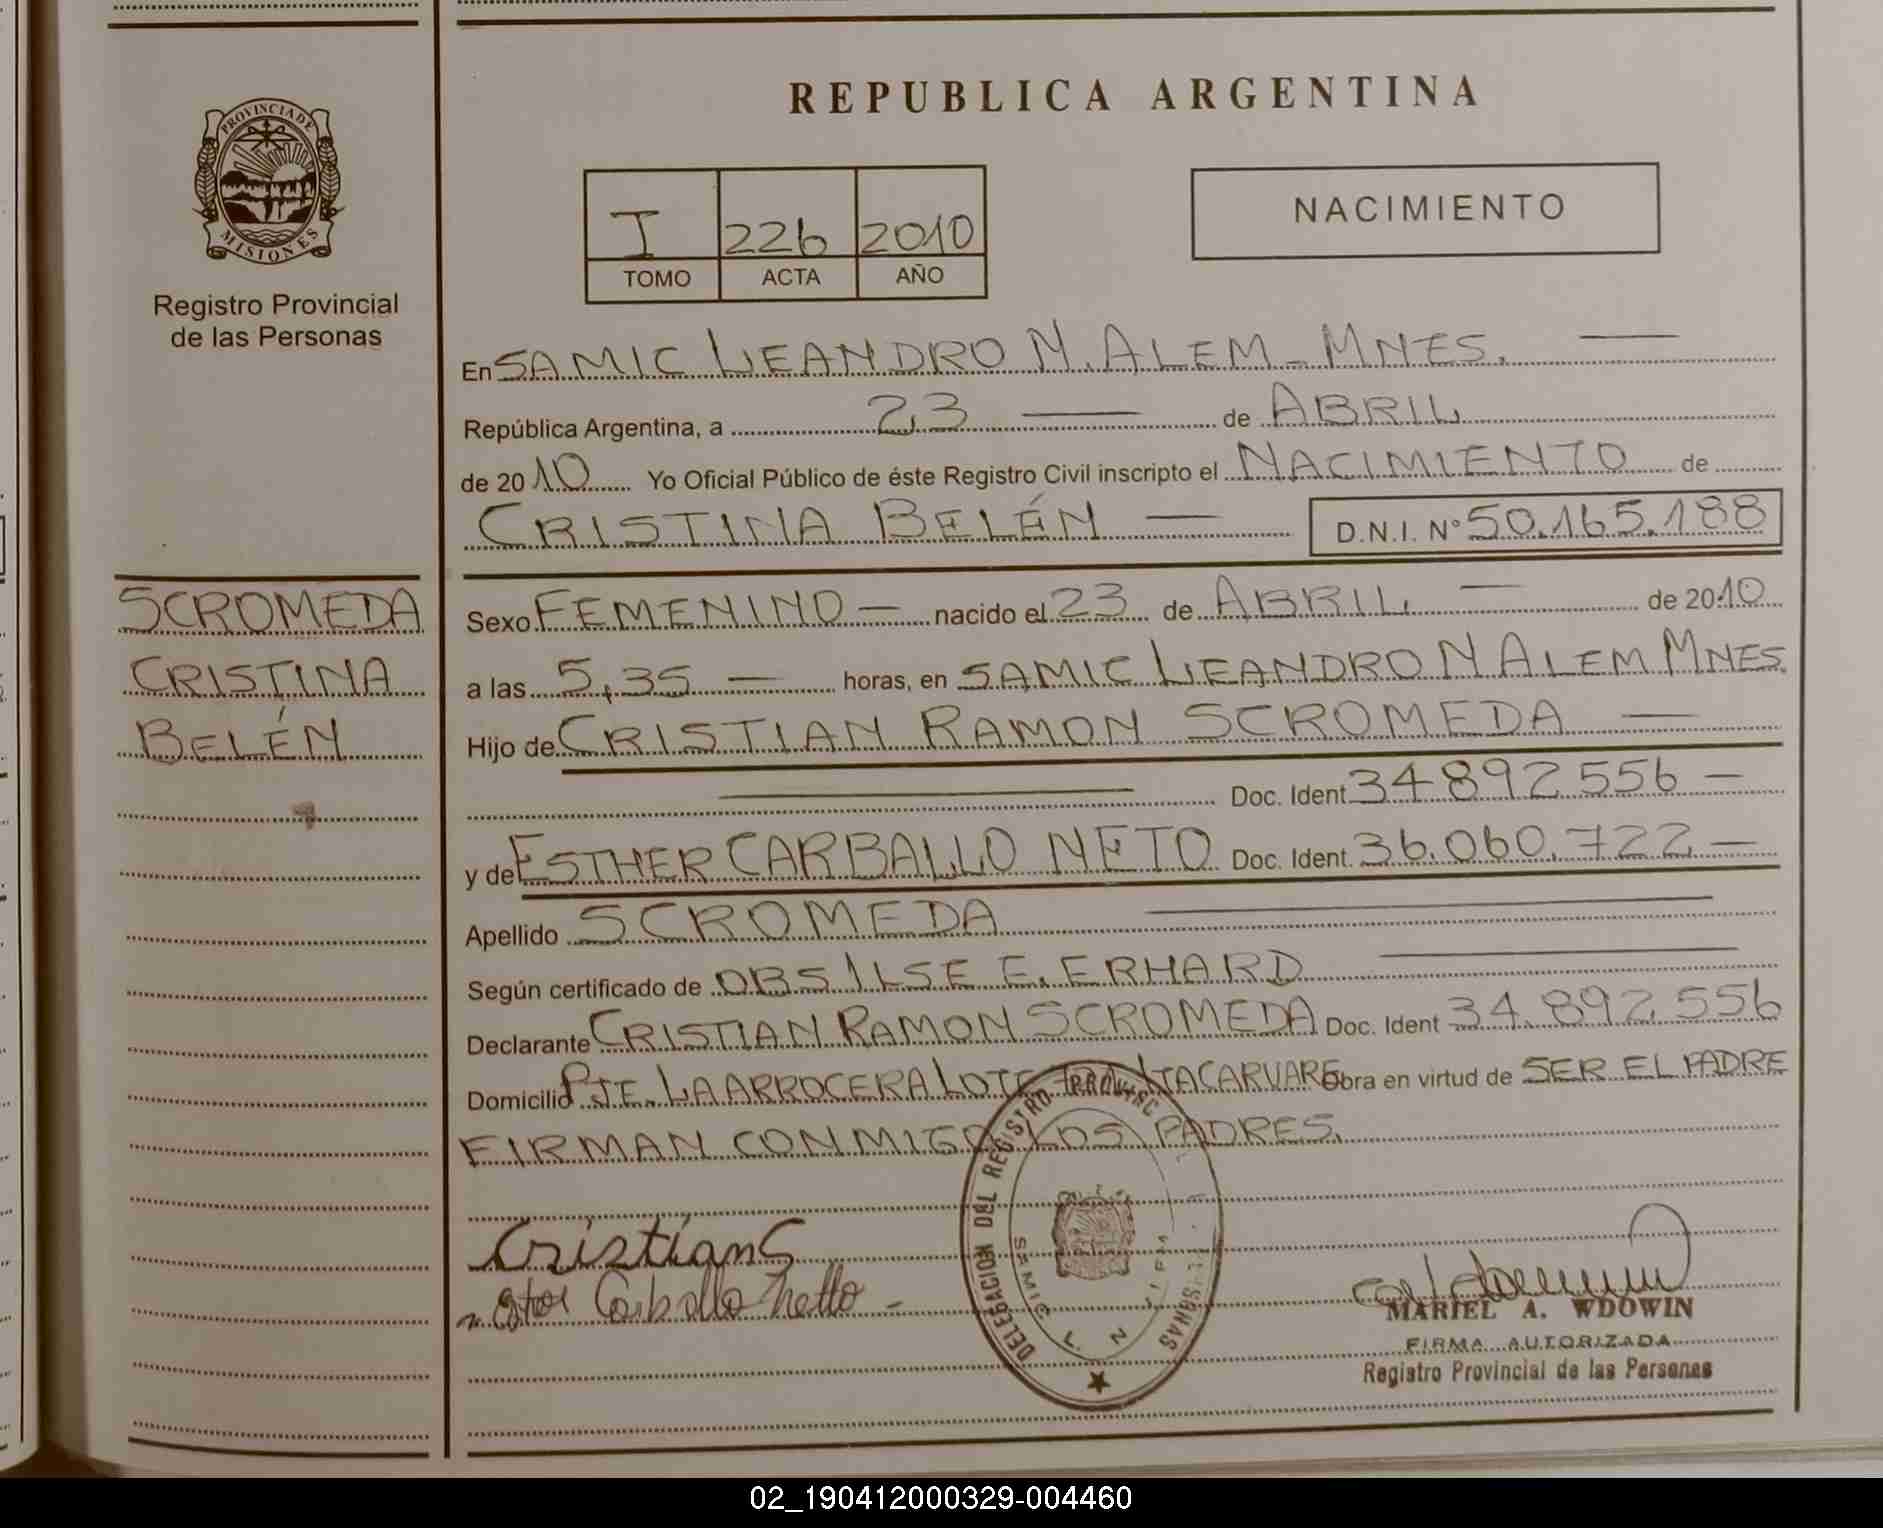 REPUBLICA ARGENTINA
PROVINCIA DE
MISIONES
Registro Provincial
de las Personas
I 226 2010
TOMO ACTA AÑO
NACIMIENTO
En SAMIC LEANDRO N. ALEM - MNES.
República Argentina, a 23 de ABRIL
de 2010 Yo Oficial Público de éste Registro Civil inscripto el NACIMIENTO de
CRISTINA BELÉN D.N.I. N° 50.165.188
SCROMEDA
CRISTINA
BELÉN
Sexo FEMENINO nacido el 23 de ABRIL de 2010
a las 5,35 horas, en SAMIC LEANDRO N ALEM MNES.
Hijo de CRISTIAN RAMON SCROMEDA
Doc. Ident 34892556
y de ESTHER CARBALLO NETO Doc. Ident. 36.060.722
Apellido SCROMEDA
Según certificado de OBS ILSE E. ERHARD
Declarante CRISTIAN RAMON SCROMEDA Doc. Ident 34.892.556
Domicilio PJE. LA ARROCERA LOTE ITACARUARE Obra en virtud de SER EL PADRE
FIRMAN CONMIGO LOS PADRES.
Cristian S
Carballo Netto
DELEGACION DEL REGISTRO
SAMIC L. N.
MARIEL A. WDOWIN
FIRMA AUTORIZADA
Registro Provincial de las Personas
02_190412000329-004460